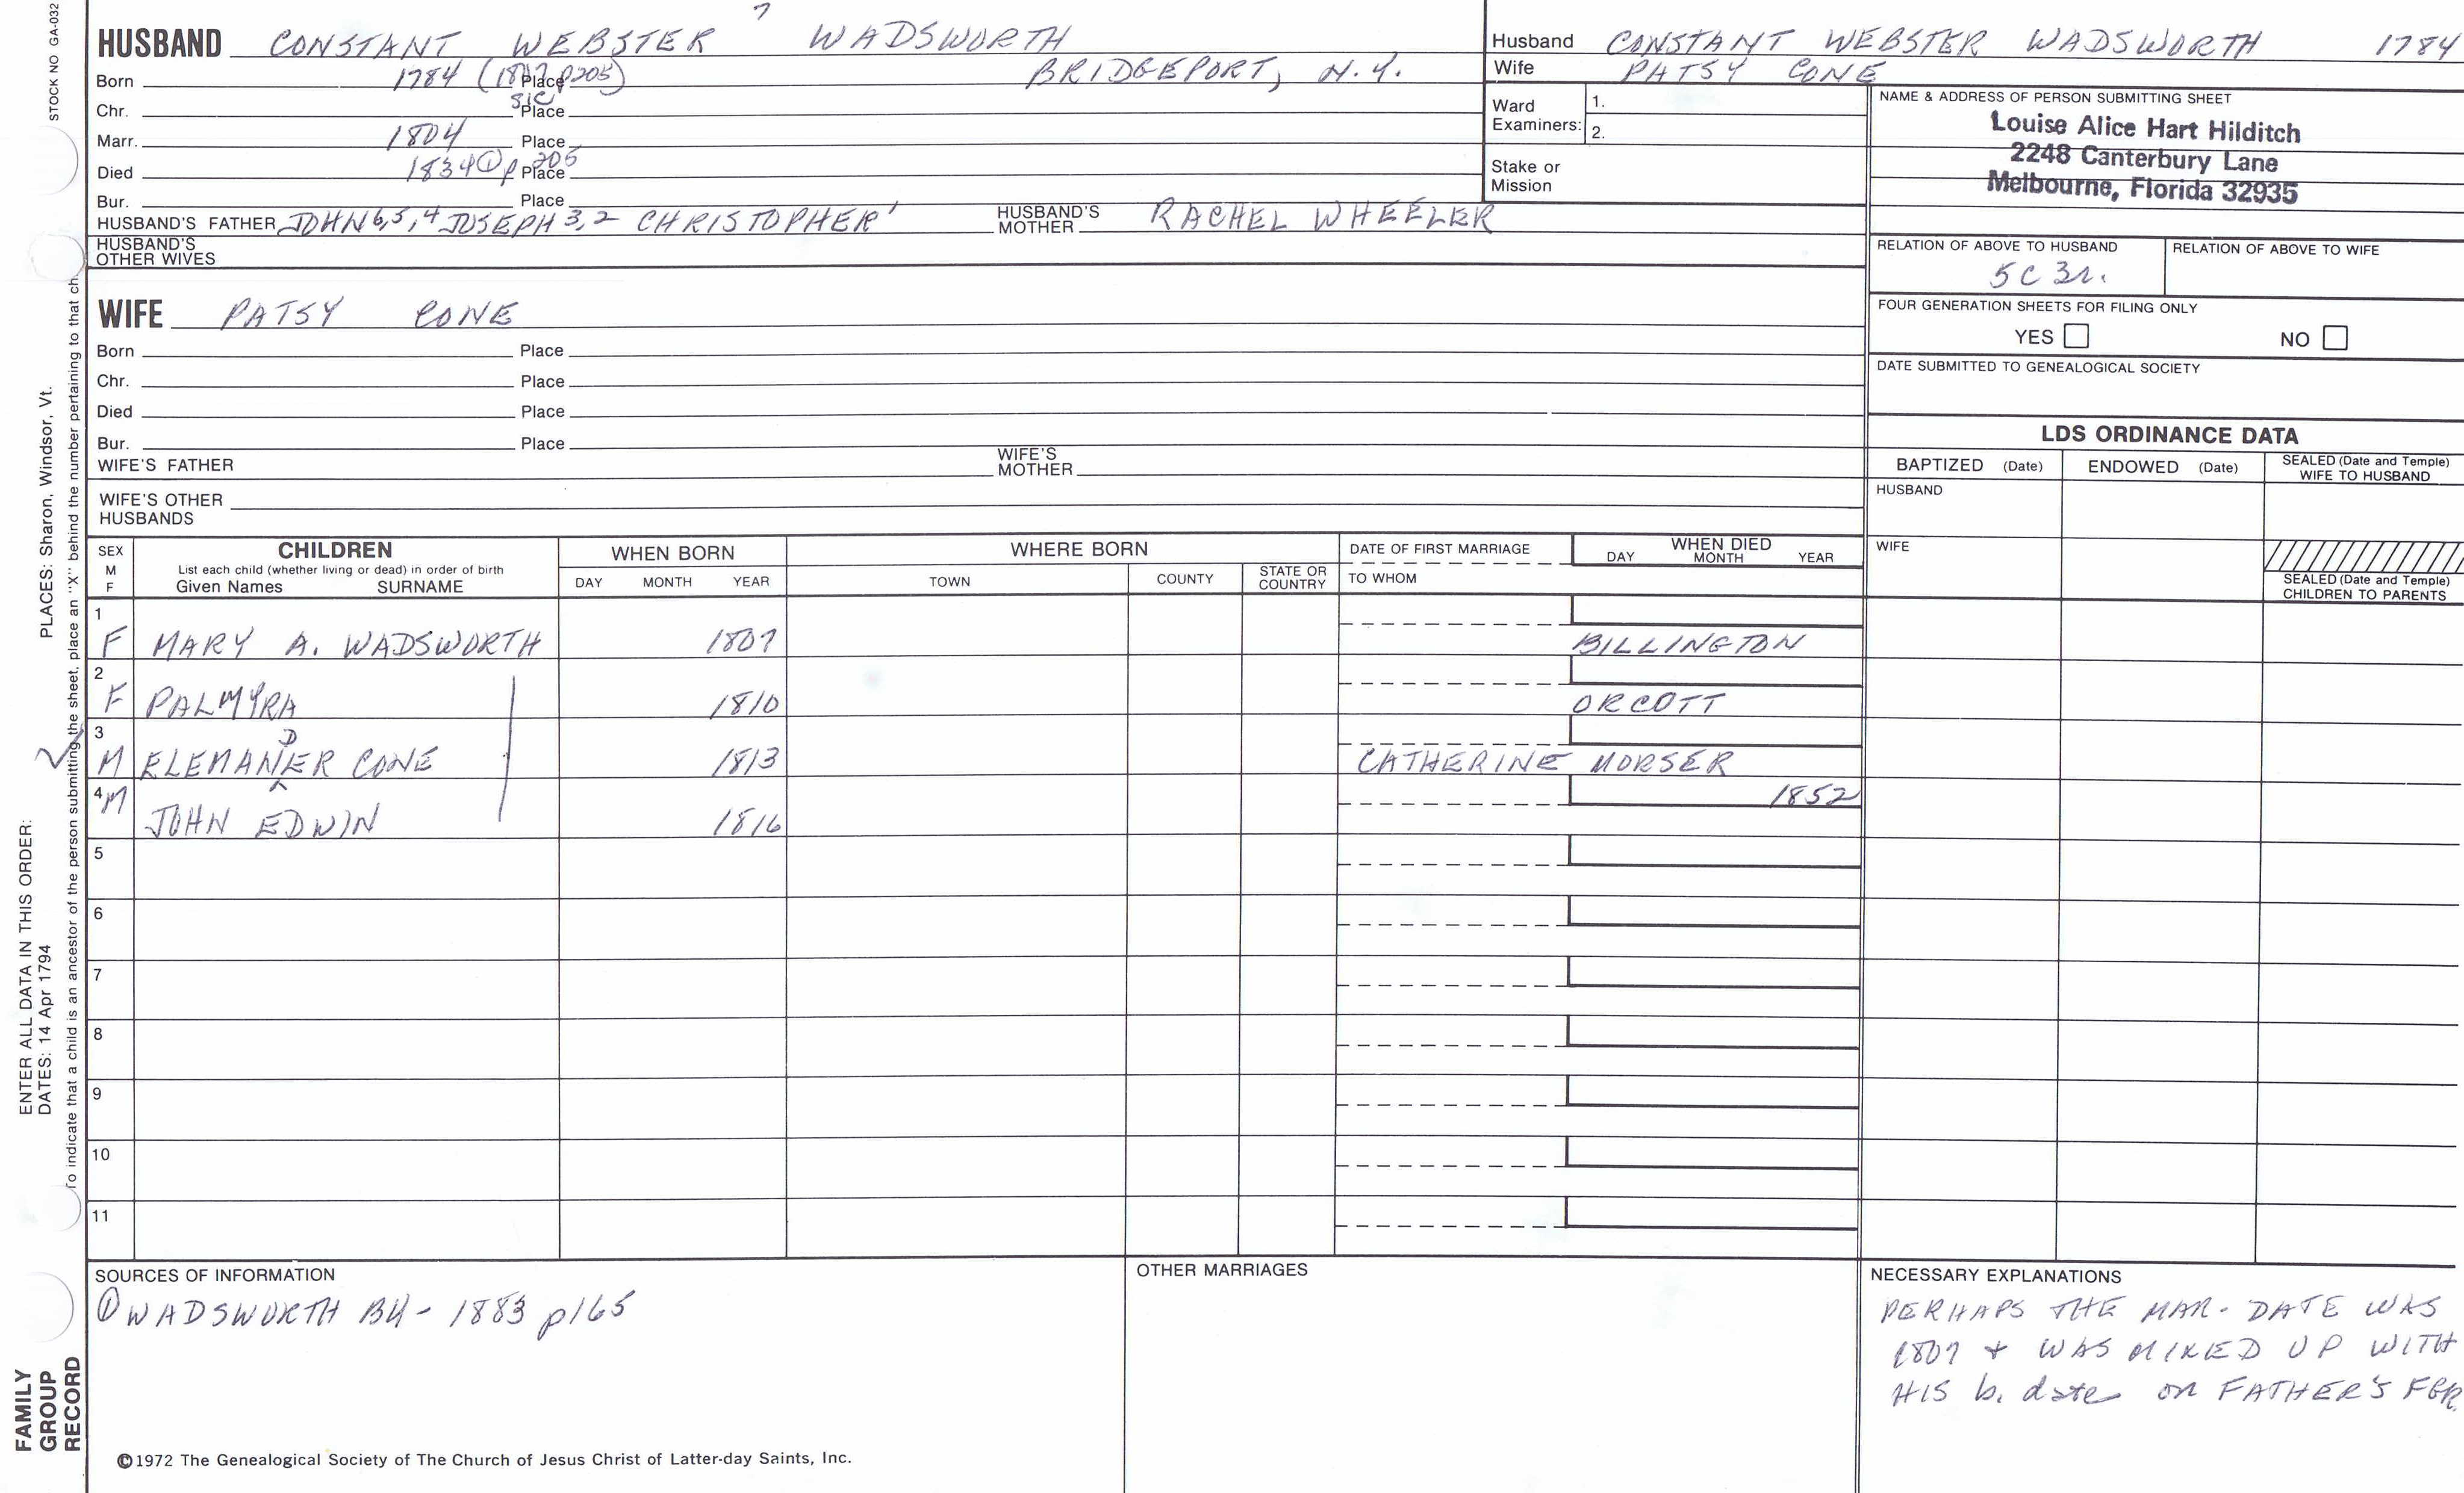 STOCK NO GA-032
7
HUSBAND CONSTANT WEBSTER WADSWORTH
Born 1784 (1807 p205) Place BRIDGEPORT, N.Y.
sic
Chr. Place
Marr. 1804 Place
Died 1834 ① p 205 Place
Bur. Place
HUSBAND'S FATHER JOHN 6,5,4 JOSEPH 3,2 CHRISTOPHER 1 HUSBAND'S MOTHER RACHEL WHEELER
HUSBAND'S OTHER WIVES
Husband CONSTANT WEBSTER WADSWORTH 1784
Wife PATSY CONE
Ward Examiners: 1.
2.
Stake or Mission
NAME & ADDRESS OF PERSON SUBMITTING SHEET
Louise Alice Hart Hilditch
2248 Canterbury Lane
Melbourne, Florida 32935
RELATION OF ABOVE TO HUSBAND RELATION OF ABOVE TO WIFE
5C 3r.
FOUR GENERATION SHEETS FOR FILING ONLY
YES NO
DATE SUBMITTED TO GENEALOGICAL SOCIETY
WIFE PATSY CONE
Born Place
Chr. Place
Died Place
Bur. Place
WIFE'S FATHER WIFE'S MOTHER
WIFE'S OTHER HUSBANDS
LDS ORDINANCE DATA
BAPTIZED (Date) ENDOWED (Date) SEALED (Date and Temple) WIFE TO HUSBAND
HUSBAND
WIFE
SEALED (Date and Temple) CHILDREN TO PARENTS
SEX M F
CHILDREN
List each child (whether living or dead) in order of birth
Given Names SURNAME
WHEN BORN
DAY MONTH YEAR
WHERE BORN
TOWN COUNTY STATE OR COUNTRY
DATE OF FIRST MARRIAGE
TO WHOM
WHEN DIED
DAY MONTH YEAR
1
F MARY A. WADSWORTH 1807 BILLINGTON
2
F PALMYRA 1810 ORCOTT
3
D
M ELEMANER CONE 1813 CATHERINE MORSER
4 M JOHN EDWIN 1816 1852
5
6
7
8
9
10
11
SOURCES OF INFORMATION
① WADSWORTH BK - 1883 p165
OTHER MARRIAGES
NECESSARY EXPLANATIONS
PERHAPS THE MAR. DATE WAS
1807 & WAS MIXED UP WITH
HIS b. date on FATHER'S FGR.
©1972 The Genealogical Society of The Church of Jesus Christ of Latter-day Saints, Inc.
FAMILY
GROUP
RECORD
ENTER ALL DATA IN THIS ORDER:
DATES: 14 Apr 1794 PLACES: Sharon, Windsor, Vt.
To indicate that a child is an ancestor of the person submitting the sheet, place an "X" behind the number pertaining to that ch